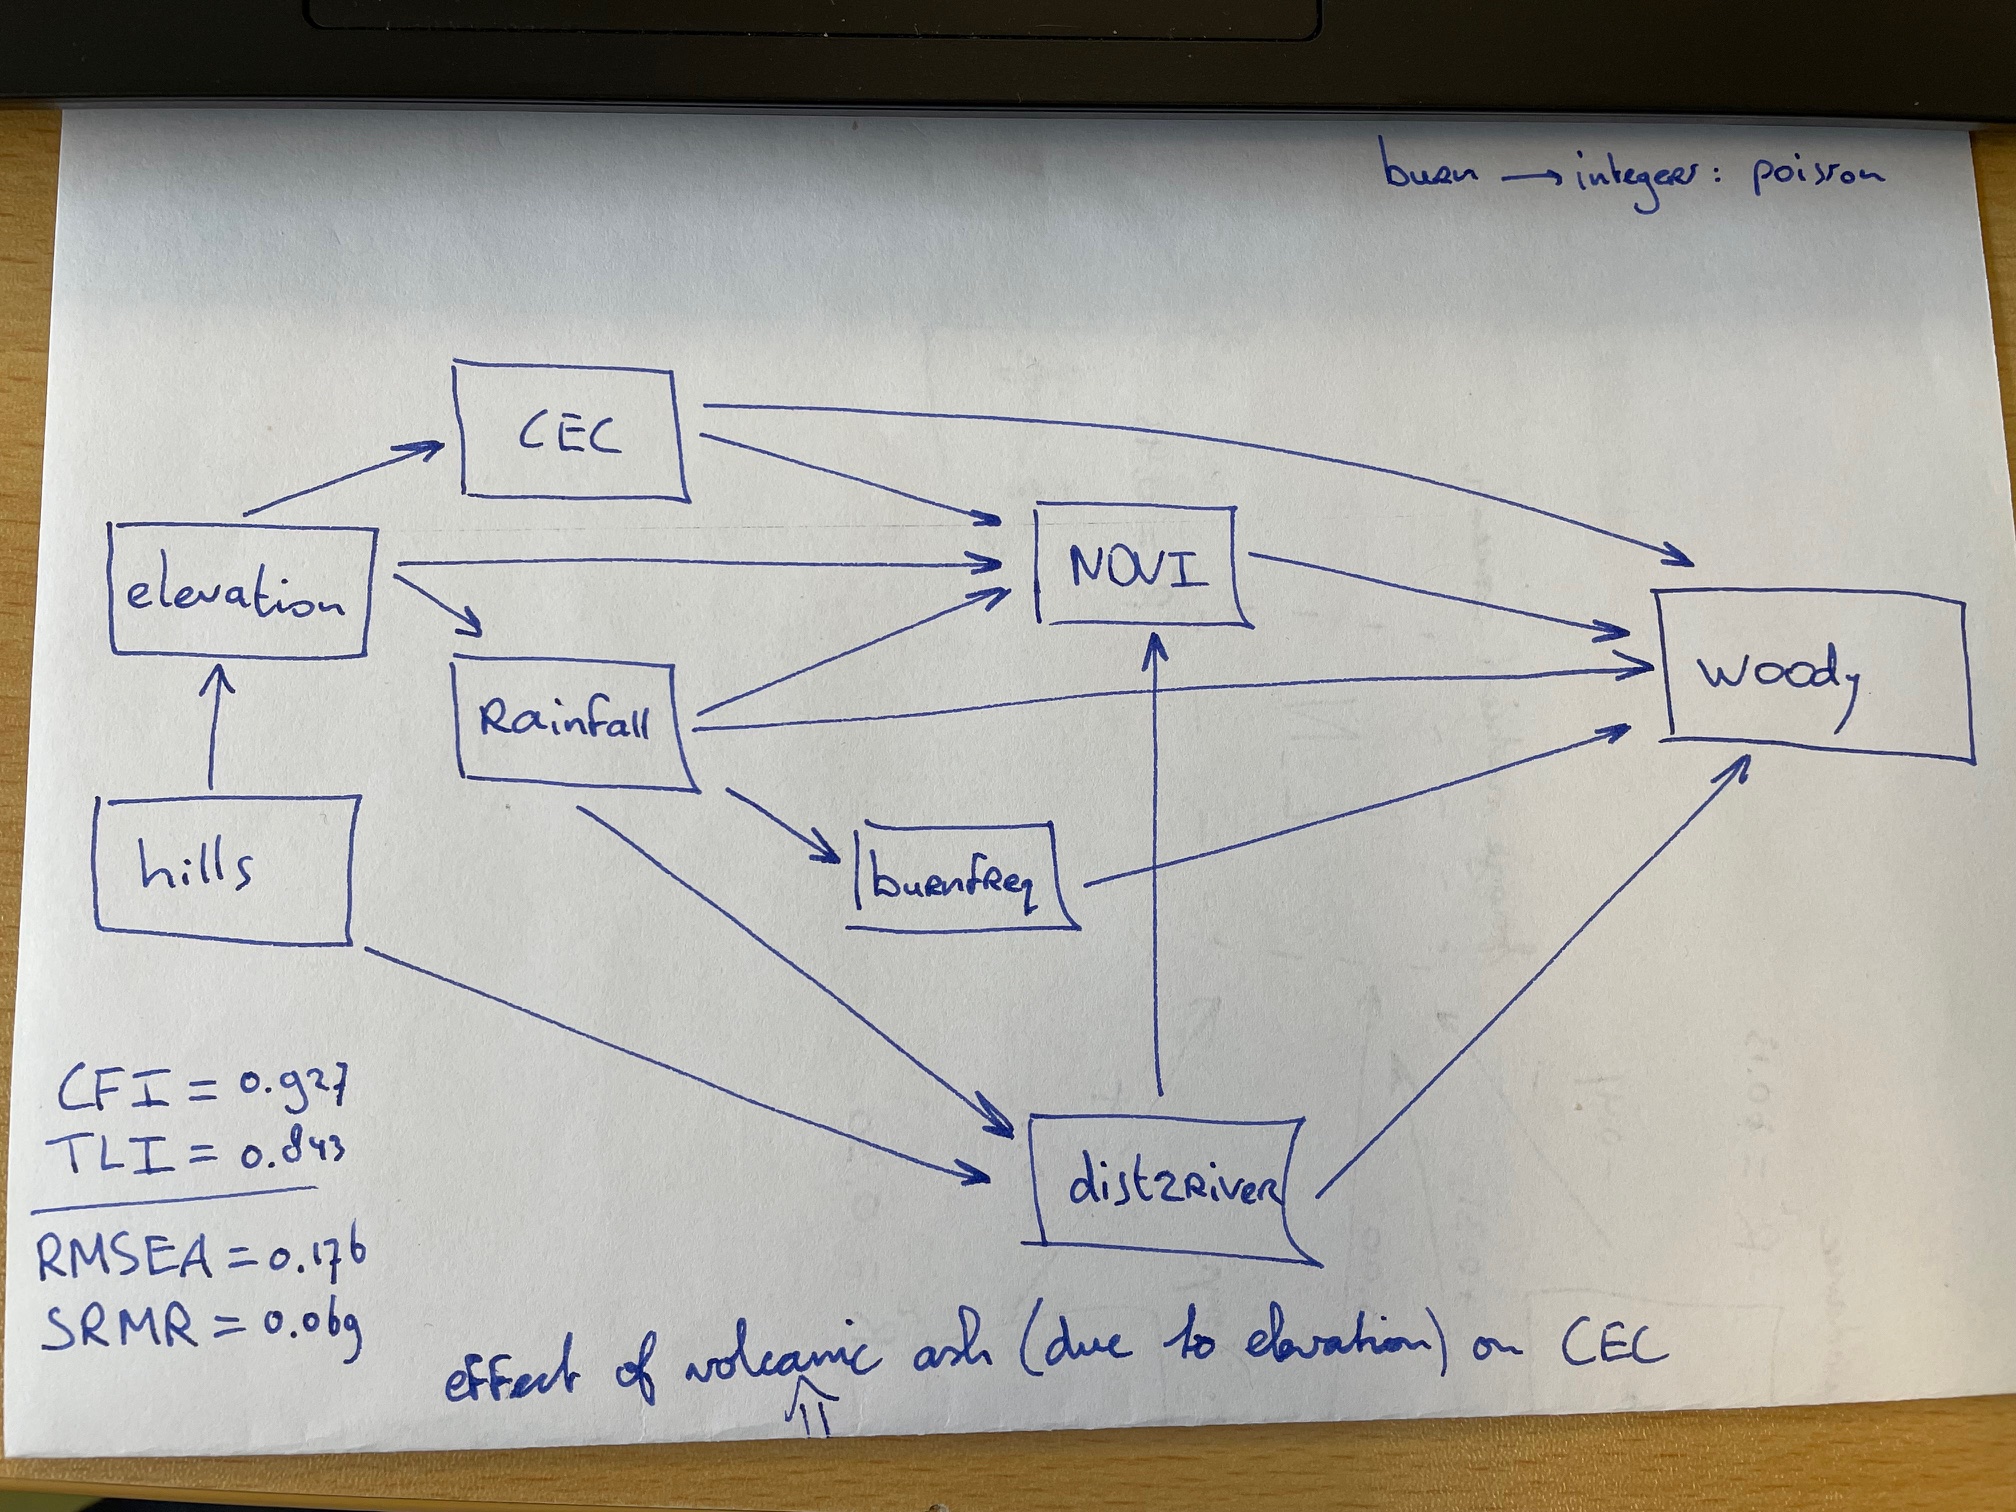 burn → integer: poisson
CEC
elevation
NDVI
Rainfall
woody
hills
burnfreq
dist2River
CFI = 0.927
TLI = 0.843
RMSEA = 0.176
SRMR = 0.069
effect of volcanic ash (due to elevation) on CEC